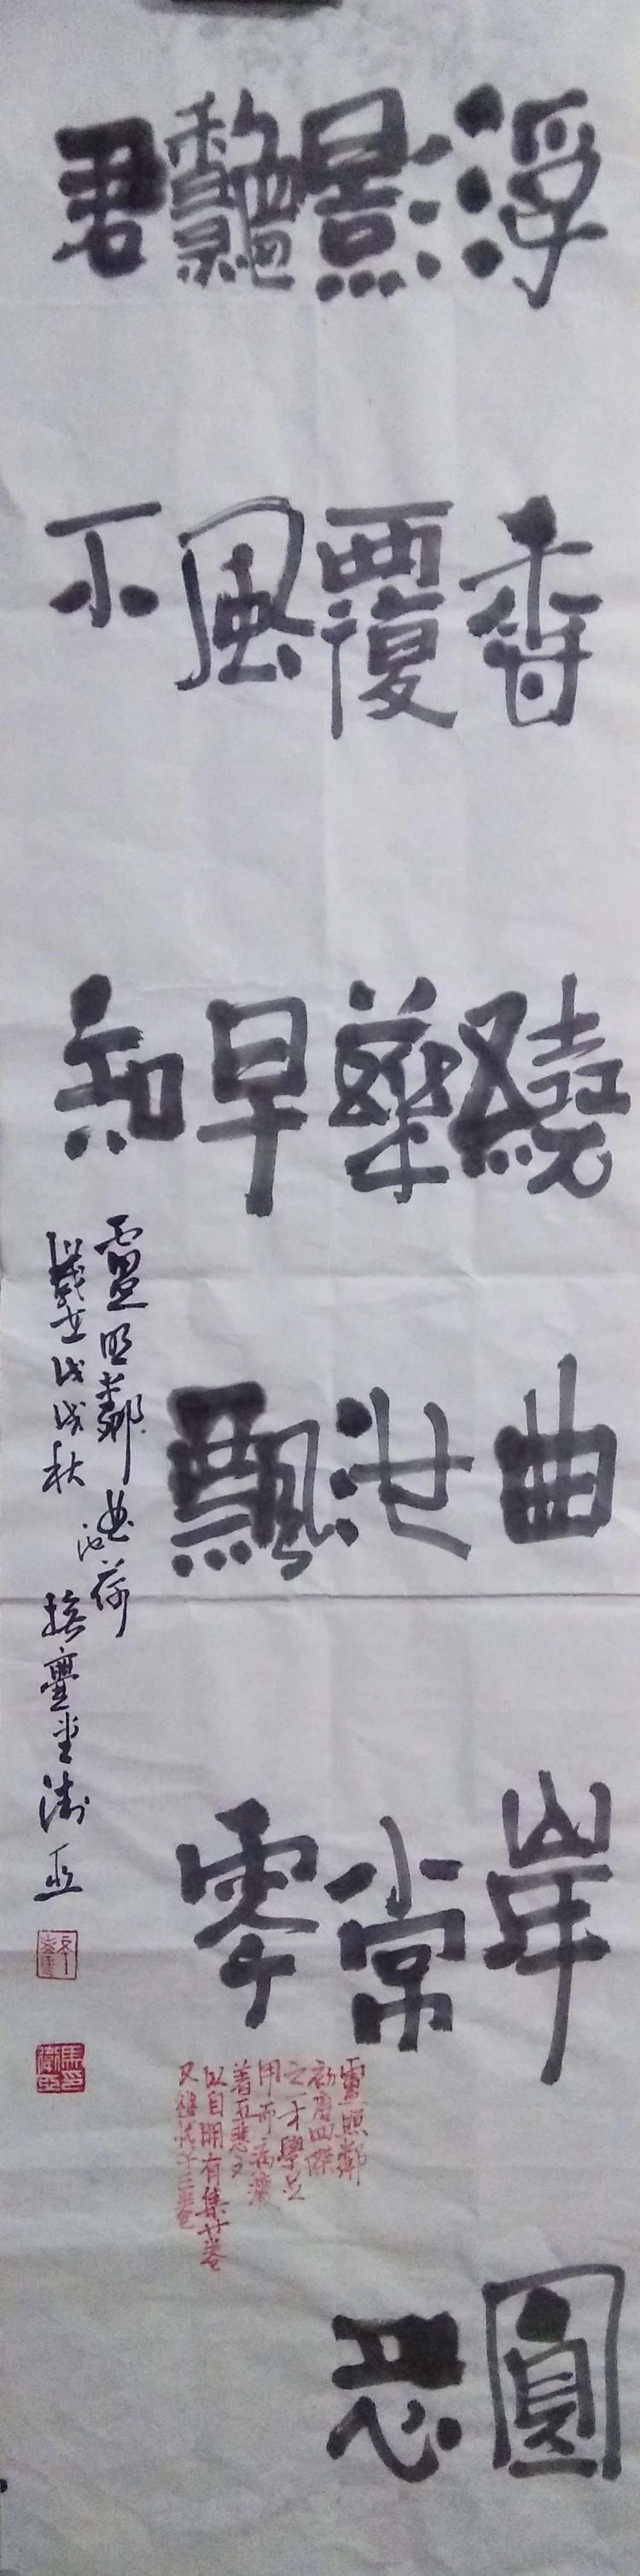 浮香繞曲岸圓
影覆華池常恐
龝風早飄零
君不知
盧照鄰 曲池荷
戊戌秋
盧照鄰
初唐四傑
之一才學
用而病廢
著五悲文
以自明有集廿卷
又 子三卷